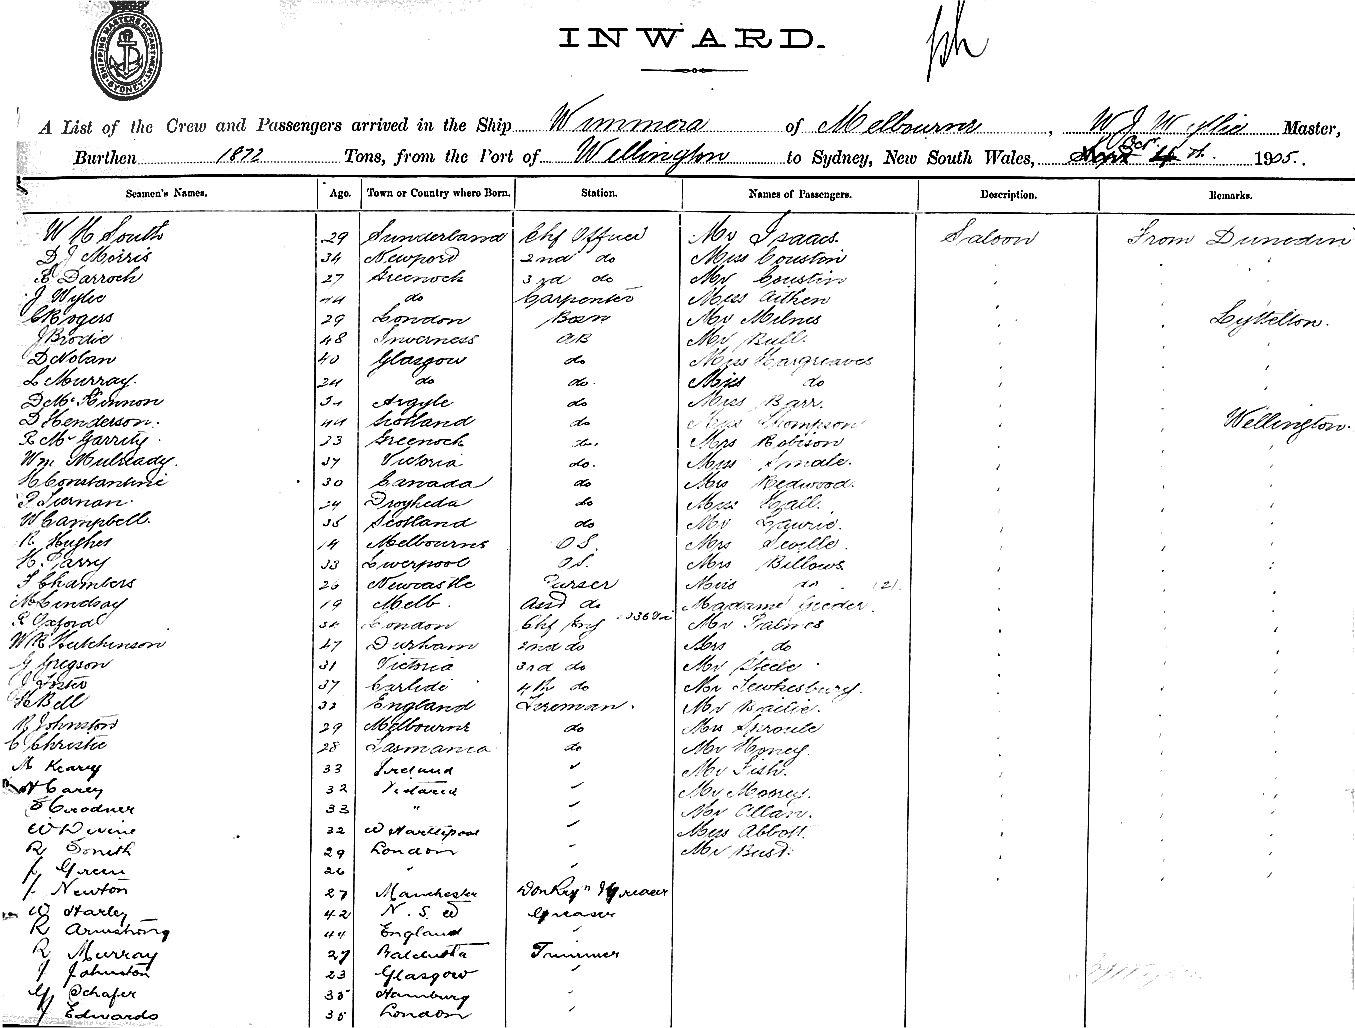 SHIPPING MASTERS DEPARTMENT SYDNEY
INWARD.
A List of the Crew and Passengers arrived in the Ship Wimmera of Melbourne, W J Wylie Master,
Burthen 1872 Tons, from the Port of Wellington to Sydney, New South Wales, Oct 4th. 1905.
Seamen's Names. Age. Town or Country where Born. Station. Names of Passengers. Description. Remarks.
W H South 29 Sunderland Chf Officer Mr Isaacs. Saloon From Dunedin
D J Morris 34 Newport 2nd do Miss Couston
R Darroch 27 Greenock 3rd do Mr Coustin
J Wylie do Carpenter Miss Aitken
C Rogers 29 London Bosn Mr Milnes Lyttelton.
J Brodie 48 Inverness AB Mr Bull.
D Nolan 40 Glasgow do Miss Hargreaves
L Murray. 24 do do. Miss do
D McKinnon Argyle do Miss Barr.
D Henderson. 44 Scotland do Thompson Wellington.
P McGarrity. 23 Greenock do. Mrs Robison
Wm Mulready. 37 Victoria do. Miss Smale.
H Constantine 30 Canada do Mrs Redwood.
P Tiernan. 24 Drogheda do Miss Hall.
W Campbell. 35 Scotland do Mr Laurie.
R Hughes 19 Melbourne O.S. Mrs Seville.
H. Parry 33 Liverpool O.S. Mrs Billows
F Chambers 26 Newcastle Purser Miss do (2)
M Lindsay 19 Melb. Asst do Madame
R Oxford London Chf Eng Mr Palmes
W R Hutchinson 47 Durham 2nd do Mrs do
J Gregson 31 Victoria 3rd do Mr Steele.
J Foster 37 4th do Mr Tewkesbury.
H Bell 32 England Fireman. Mr Bailie.
R Johnston 29 Melbourne do Mrs Sproule
C Christie 28 Tasmania do Mr Honey.
M Keary 33 Ireland " Mr Fish.
H Carey 32 Victoria " Mr Mooney.
33 " " Mr Allan.
W Devine 32 W Hartlepool " Miss Abbott.
R Smith 29 London " Mr Bust.
J Green 26 " "
J. Newton 27 Manchester Donkey" & Greaser
W Harley 42 N.S.W Greaser
R Armstrong 44 England "
R Murray 27 Trimmer
J Johnston 23 Glasgow "
G Schafer 35 Hamburg "
J Edwards 35 London "